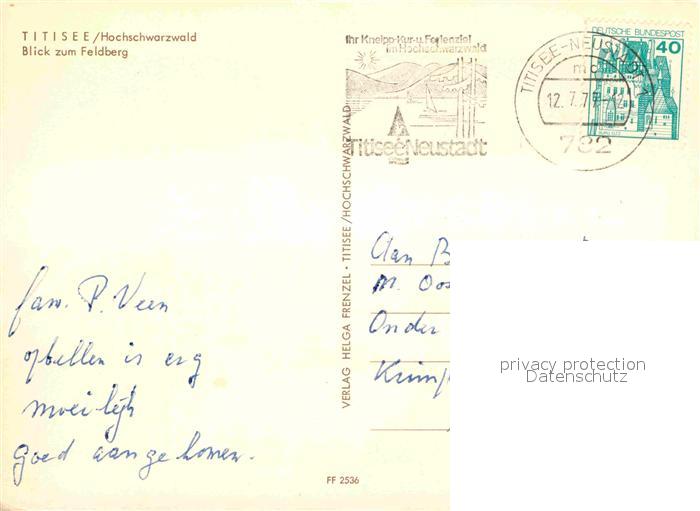 TITISEE/Hochschwarzwald
Blick zum Feldberg
Ihr Kneipp-Kur-u. Ferienziel
im Hochschwarzwald
Titisee-Neustadt
TITISEE-NEUSTADT 1
12.7.7
782
DEUTSCHE BUNDESPOST
40
VERLAG HELGA FRENZEL · TITISEE/HOCHSCHWARZWALD
fam. P. Veen
opbellen is erg
moeilijk
goed aangekomen.
Aan B
M. Oos
Onder
Krimp
privacy protection
Datenschutz
FF 2536